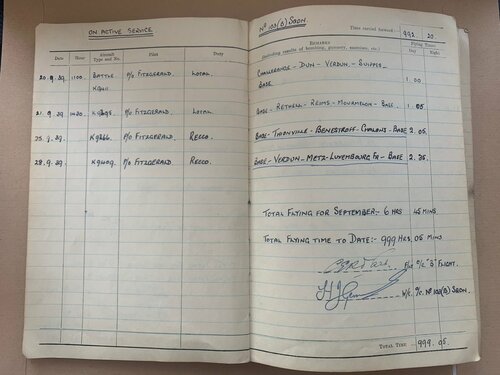 ON ACTIVE SERVICE
Date Hour Aircraft Type and No. Pilot Duty
20.9.39. 1100. BATTLE P/O FITZGERALD LOCAL.
21.9.39. 1430. P/O FITZGERALD. LOCAL.
25.9.39. P/O FITZGERALD. RECCO.
28.9.39. K9409. P/O FITZGERALD. RECCO.
No 103(B) SQDN.
Time carried forward:— 992 20
REMARKS
(including results of bombing, gunnery, exercises, etc.)
Flying Times
Day Night
CHALLERANGE - DUN - VERDUN - SUIPPES
BASE 1.00
BASE - RETHELL - REIMS - MOURMELON - BASE. 1.05
BASE - THIONVILLE - BENESTROFF - CHALONS - BASE 2.05
BASE - VERDUN - METZ - LUXEMBOURG FR - BASE 2.35.
TOTAL FLYING FOR SEPTEMBER:- 6 HRS 45 MINS.
TOTAL FLYING TIME TO DATE:- 999 HRS. 05 MINS
F/Lt O/C "B" FLIGHT.
W/C. O/C. No 103(B) SQDN.
TOTAL TIME 999. 05.